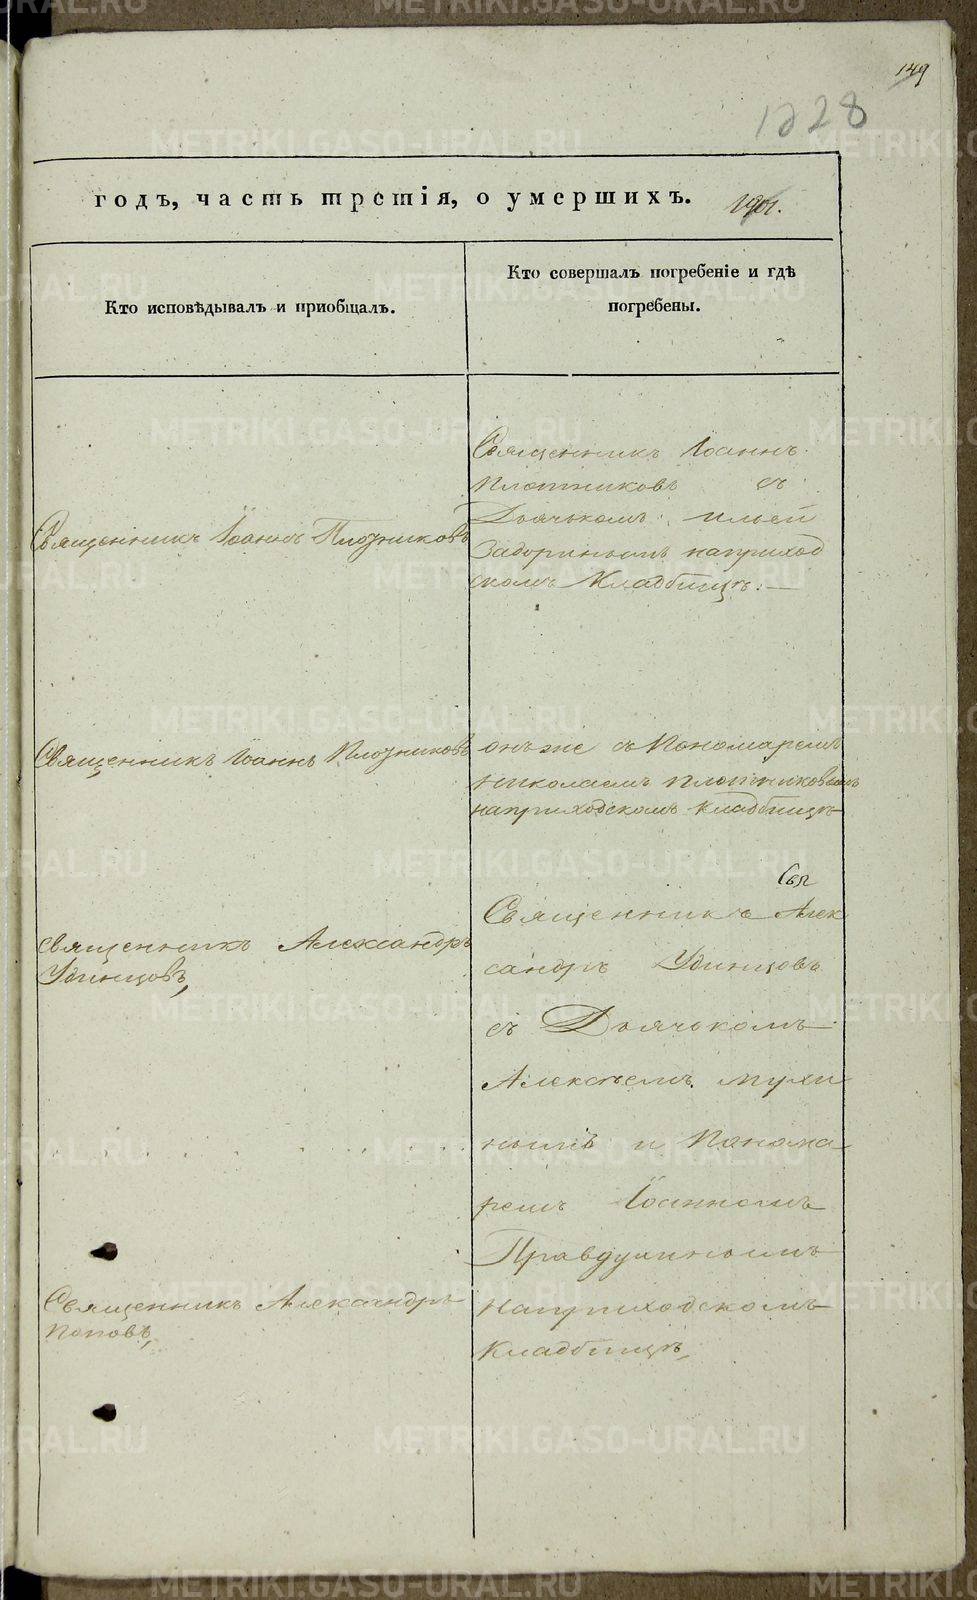 149
1228
годъ, часть третія, о умершихъ.
Кто исповѣдывалъ и пріобщалъ.
Кто совершалъ погребеніе и гдѣ
погребены.
Священникъ Іоаннъ Плотниковъ
Священникъ Іоаннъ
Плотниковъ съ
Дьячькомъ Ильей
Задоринымъ наприход
скомъ Кладбищѣ.
Священникъ Іоаннъ Плотниковъ
онъ же съ Пономаремъ
Николаемъ Плотниковымъ
наприходскомъ Кладбищѣ
Священникъ Александръ
Удинцовъ,
Свя
Священникъ Алек
сандръ Удинцовъ
съ Дьячькомъ
Алексѣемъ Мухи
нымъ и Понома
ремъ Іоанномъ
Правдухинымъ
наприходскомъ
Кладбищѣ,
Священникъ Александръ
Поповъ,
METRIKI.GASO-URAL.RU